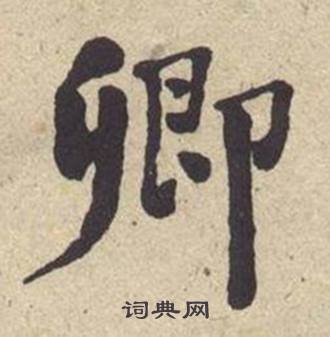 卿
词典网